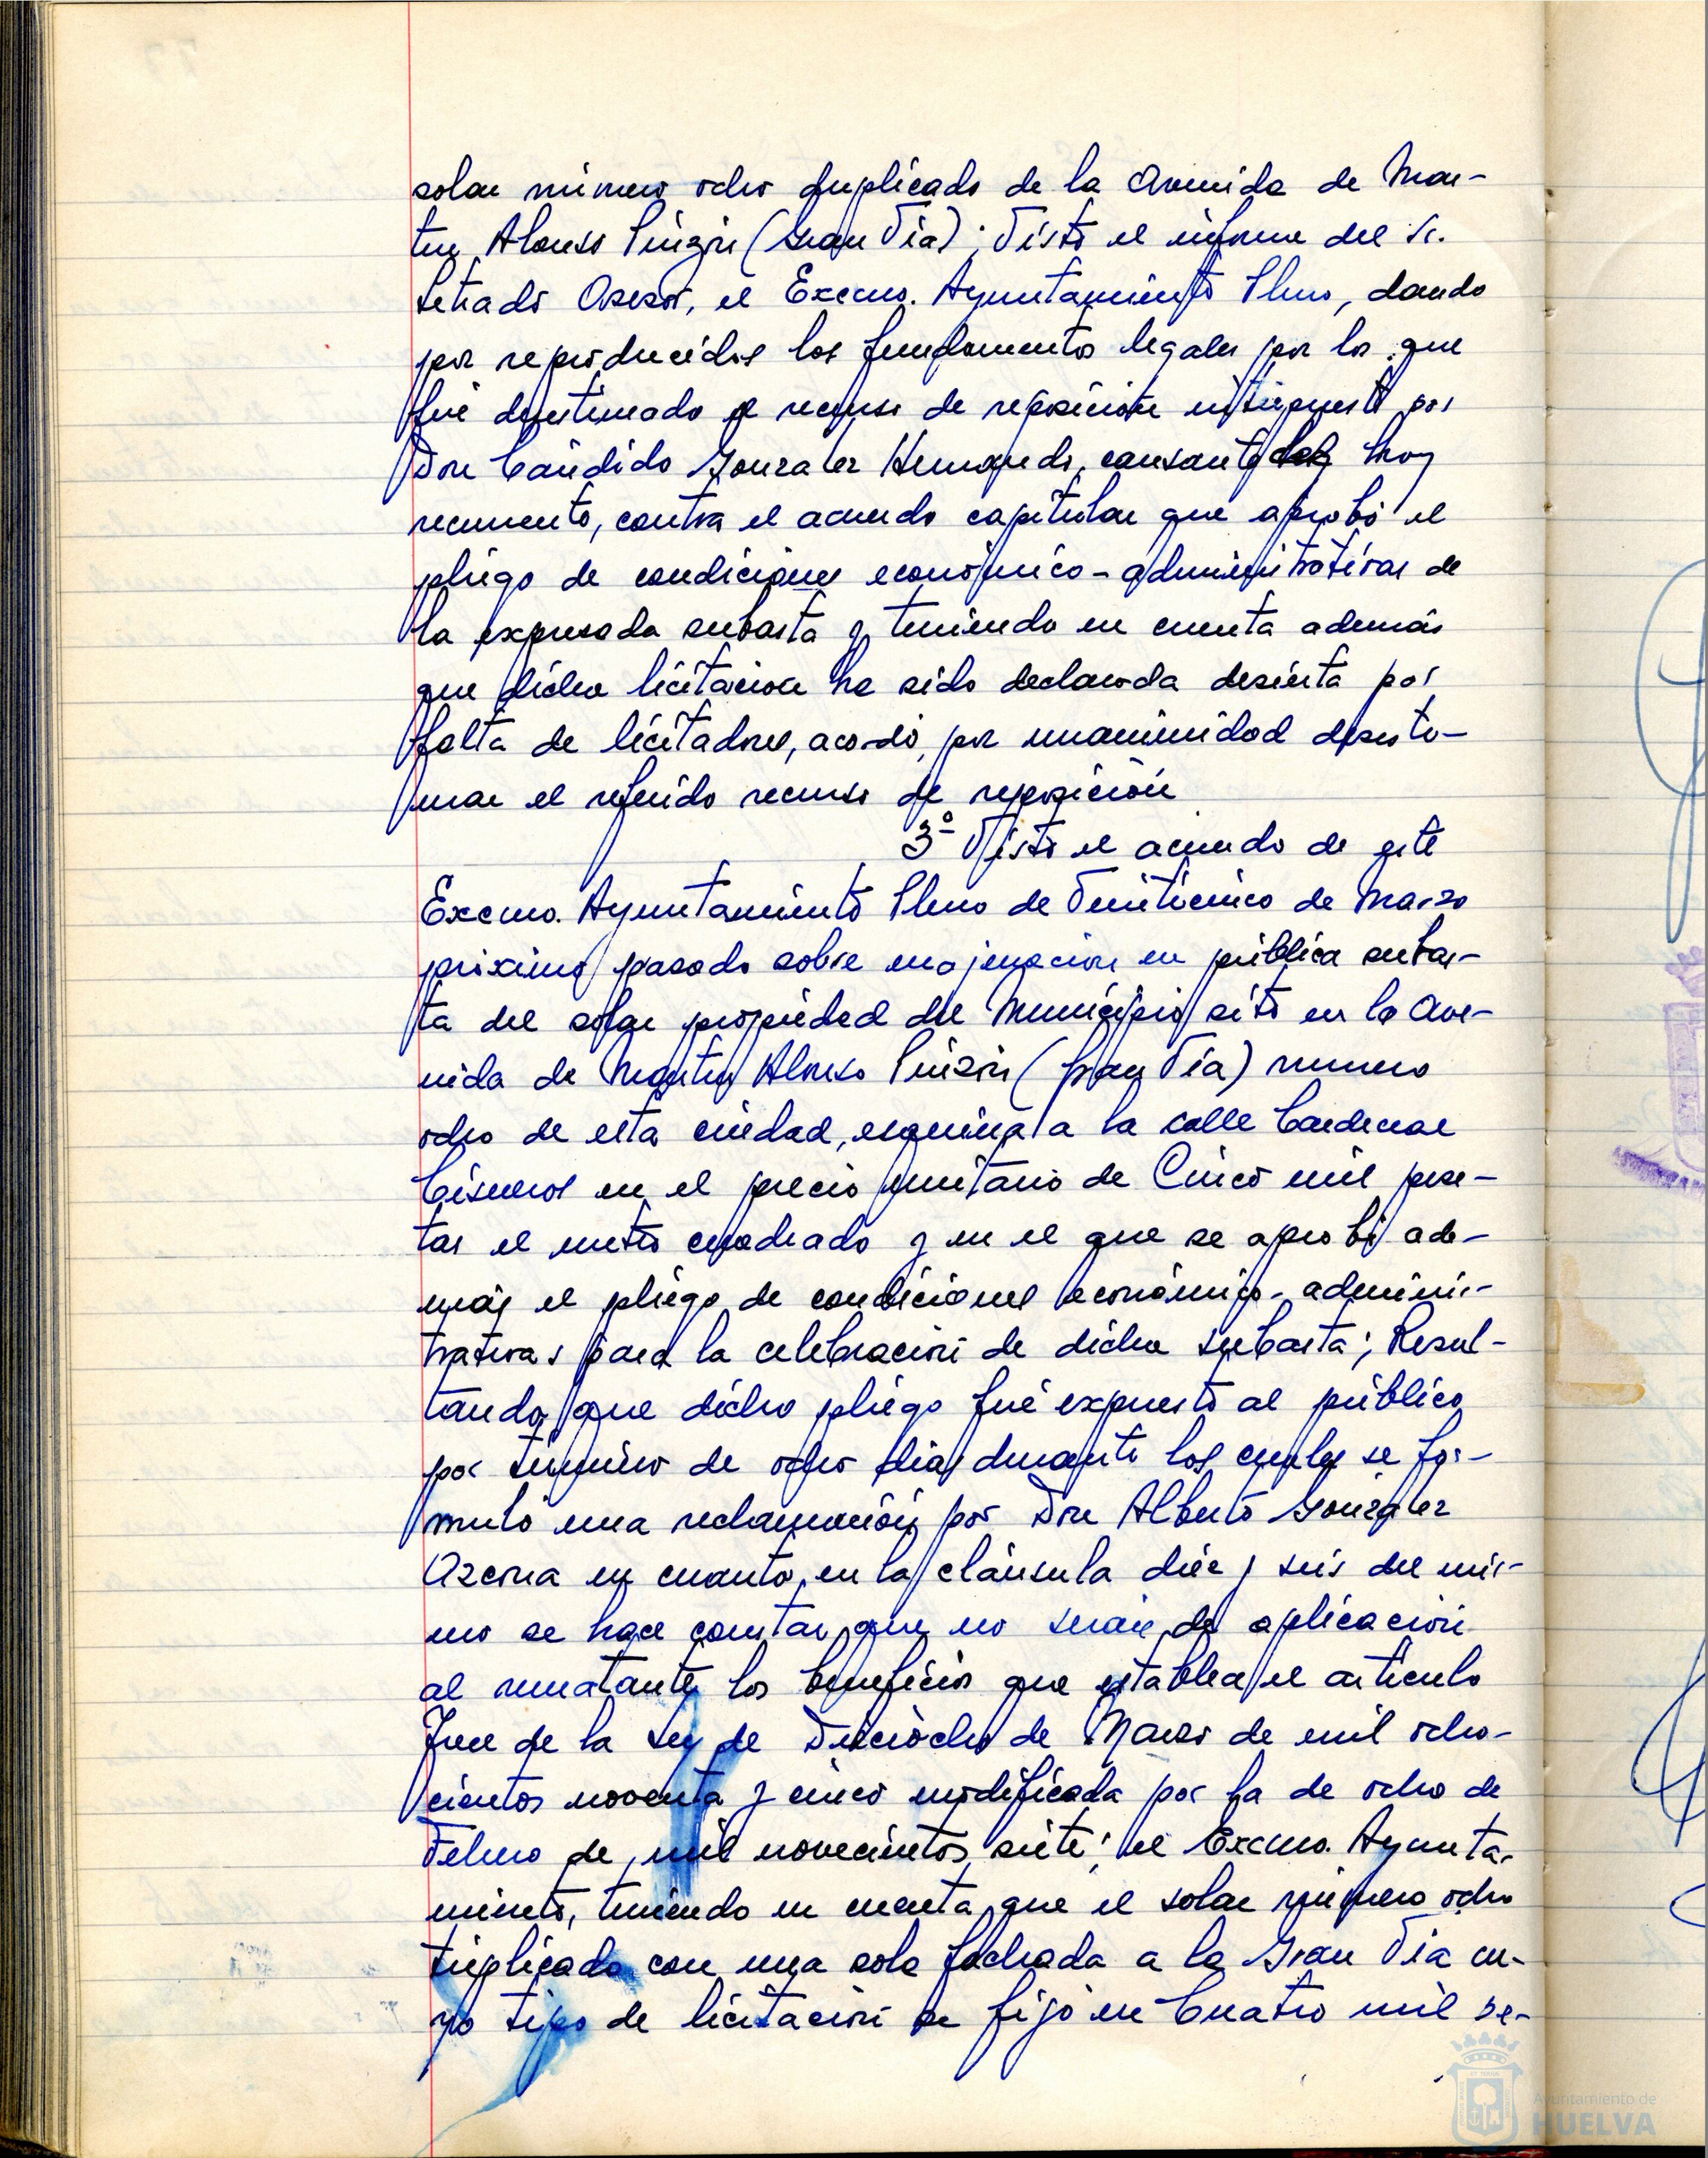 solar número ocho duplicado de la Avenida de Mar-
tin Alonso Pinzón (Gran Vía); Visto el informe del Sr.
Letrado Asesor, el Excmo. Ayuntamiento Pleno, dando
por reproducidos los fundamentos legales por los que
fué desestimado el recurso de reposición interpuesto por
Don Cándido Gonzalez Hernando, causante del hoy
recurrente, contra el acuerdo capitular que aprobó el
pliego de condiciones económico-administrativas de
la expresada subasta y teniendo en cuenta además
que dicha licitación ha sido declarada desierta por
falta de licitadores, acordó, por unanimidad desesti-
mar el referido recurso de reposición
3º Visto el acuerdo de este
Excmo. Ayuntamiento Pleno de Veinticinco de Marzo
próximo pasado sobre enajenación en pública subas-
ta del solar propiedad del Municipio sito en la Ave-
nida de Martin Alonso Pinzón (Gran Vía) numero
ocho de esta ciudad, esquina a la calle Cardenal
Cisneros en el precio unitario de Cinco mil pese-
tas el metro cuadrado y en el que se aprobó ade-
más el pliego de condiciones económico-adminis-
trativas para la celebración de dicha subasta; Resul-
tando, que dicho pliego fué expuesto al público
por término de ocho dias durante los cuales se for-
muló una reclamación por Don Alberto Gonzalez
Azcona en cuanto, en la cláusula diez y seis del mis-
mo se hace constar que no serán de aplicación
al rematante los beneficios que establece el artículo
Trece de la Ley de Dieciocho de Marzo de mil ocho-
cientos noventa y cinco modificada por la de ocho de
Febrero de mil novecientos siete; el Excmo. Ayunta-
miento, teniendo en cuenta que el solar número ocho
triplicado con una sola fachada a la Gran Vía cu-
yo tipo de licitación se fijó en Cuatro mil se-
Ayuntamiento de
HUELVA